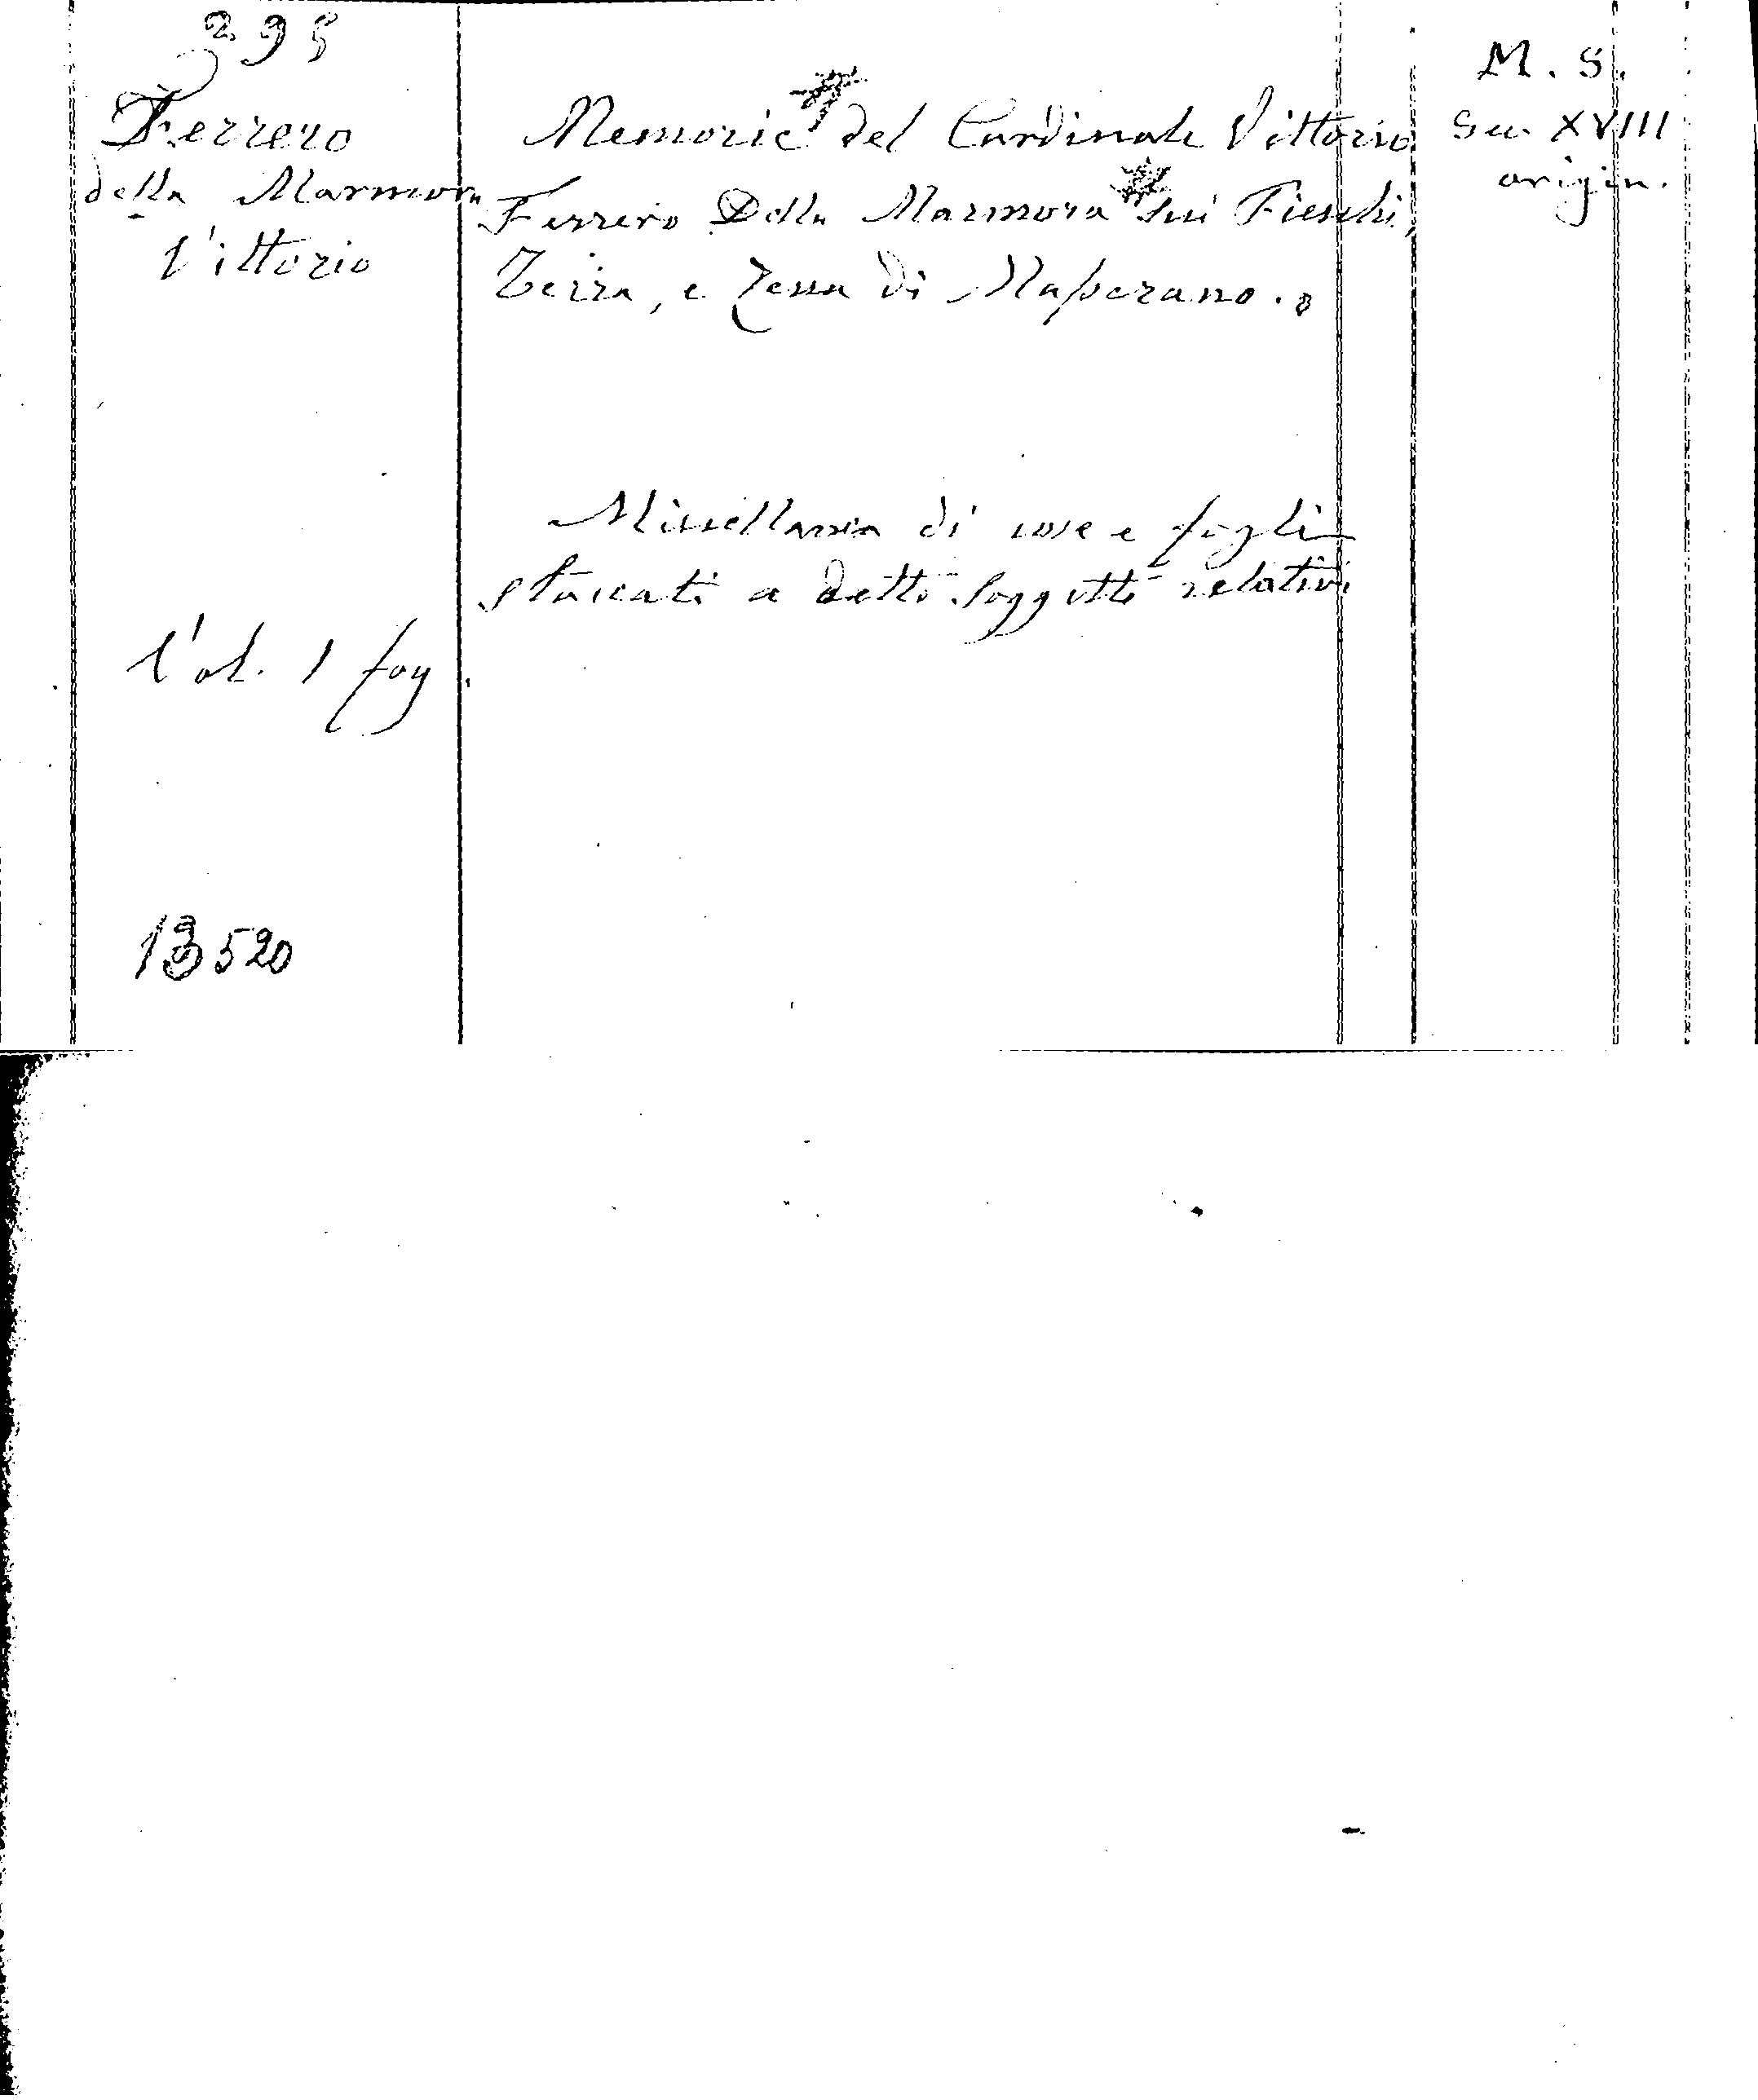 295
Ferrero
della Marmora
Vittorio
Vol. 1 fog.
13520
Memorie del Cardinale Vittorio
Ferrero Della Marmora sui Fieschi,
Terra, e Zecca di Masserano.
Miscellanea di cose e fogli
staccati a detti soggetti relativi
M. S.
Sec. XVIII
origin.